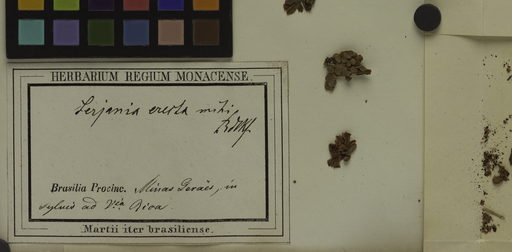 HERBARIUM REGIUM MONACENSE.
Serjania erecta mihi
Rdlkf.
Brasilia Provinc. Minas Geraës, in
sylvis ad V. Rica.
Martii iter brasiliense.